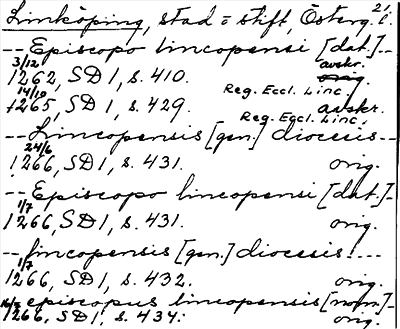 Linköping, stad o stift, Österg. l. 2.
-- Episcopo lincopensi [dat.] --
3/12 1262, SD 1, s. 410. avskr. orig.
Reg. Eccl. Linc.
14/10 1265, SD 1, s. 429. avskr.
Reg. Eccl. Linc.
-- Lincopensis [gen.] diocesis --
24/6 1266, SD 1, s. 431. orig.
-- Episcopo lincopensi [dat.] --
1/7 1266, SD 1, s. 431. orig.
-- lincopensis [gen.] diocesis ---
1/7 1266, SD 1, s. 432. orig.
-- episcopus lincopensis [nom.] --
1266, SD 1, s. 434. orig.